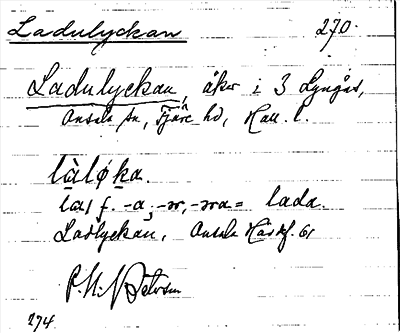 Ladulyckan 270.
Ladulyckan, åker i 3 Lyngås,
Onsala sn, Fjäre hd, Hall. l.
làløka.
la, f. -a, -ər, -əra = lada.
Ladlyckan, Onsala
P. N. Peterson
274